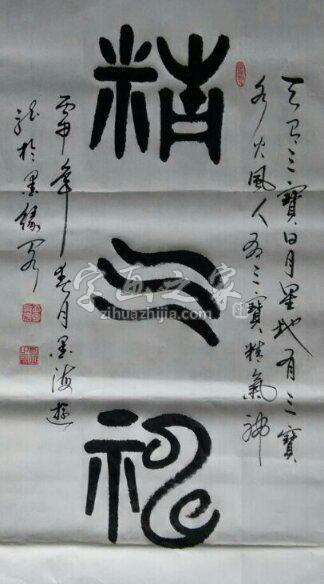 天有三寶日月星地有三寶
水火風人有三寶精氣神
精
气
神
年春月墨海遊
於墨緣
字画之家
zihuazhijia.com